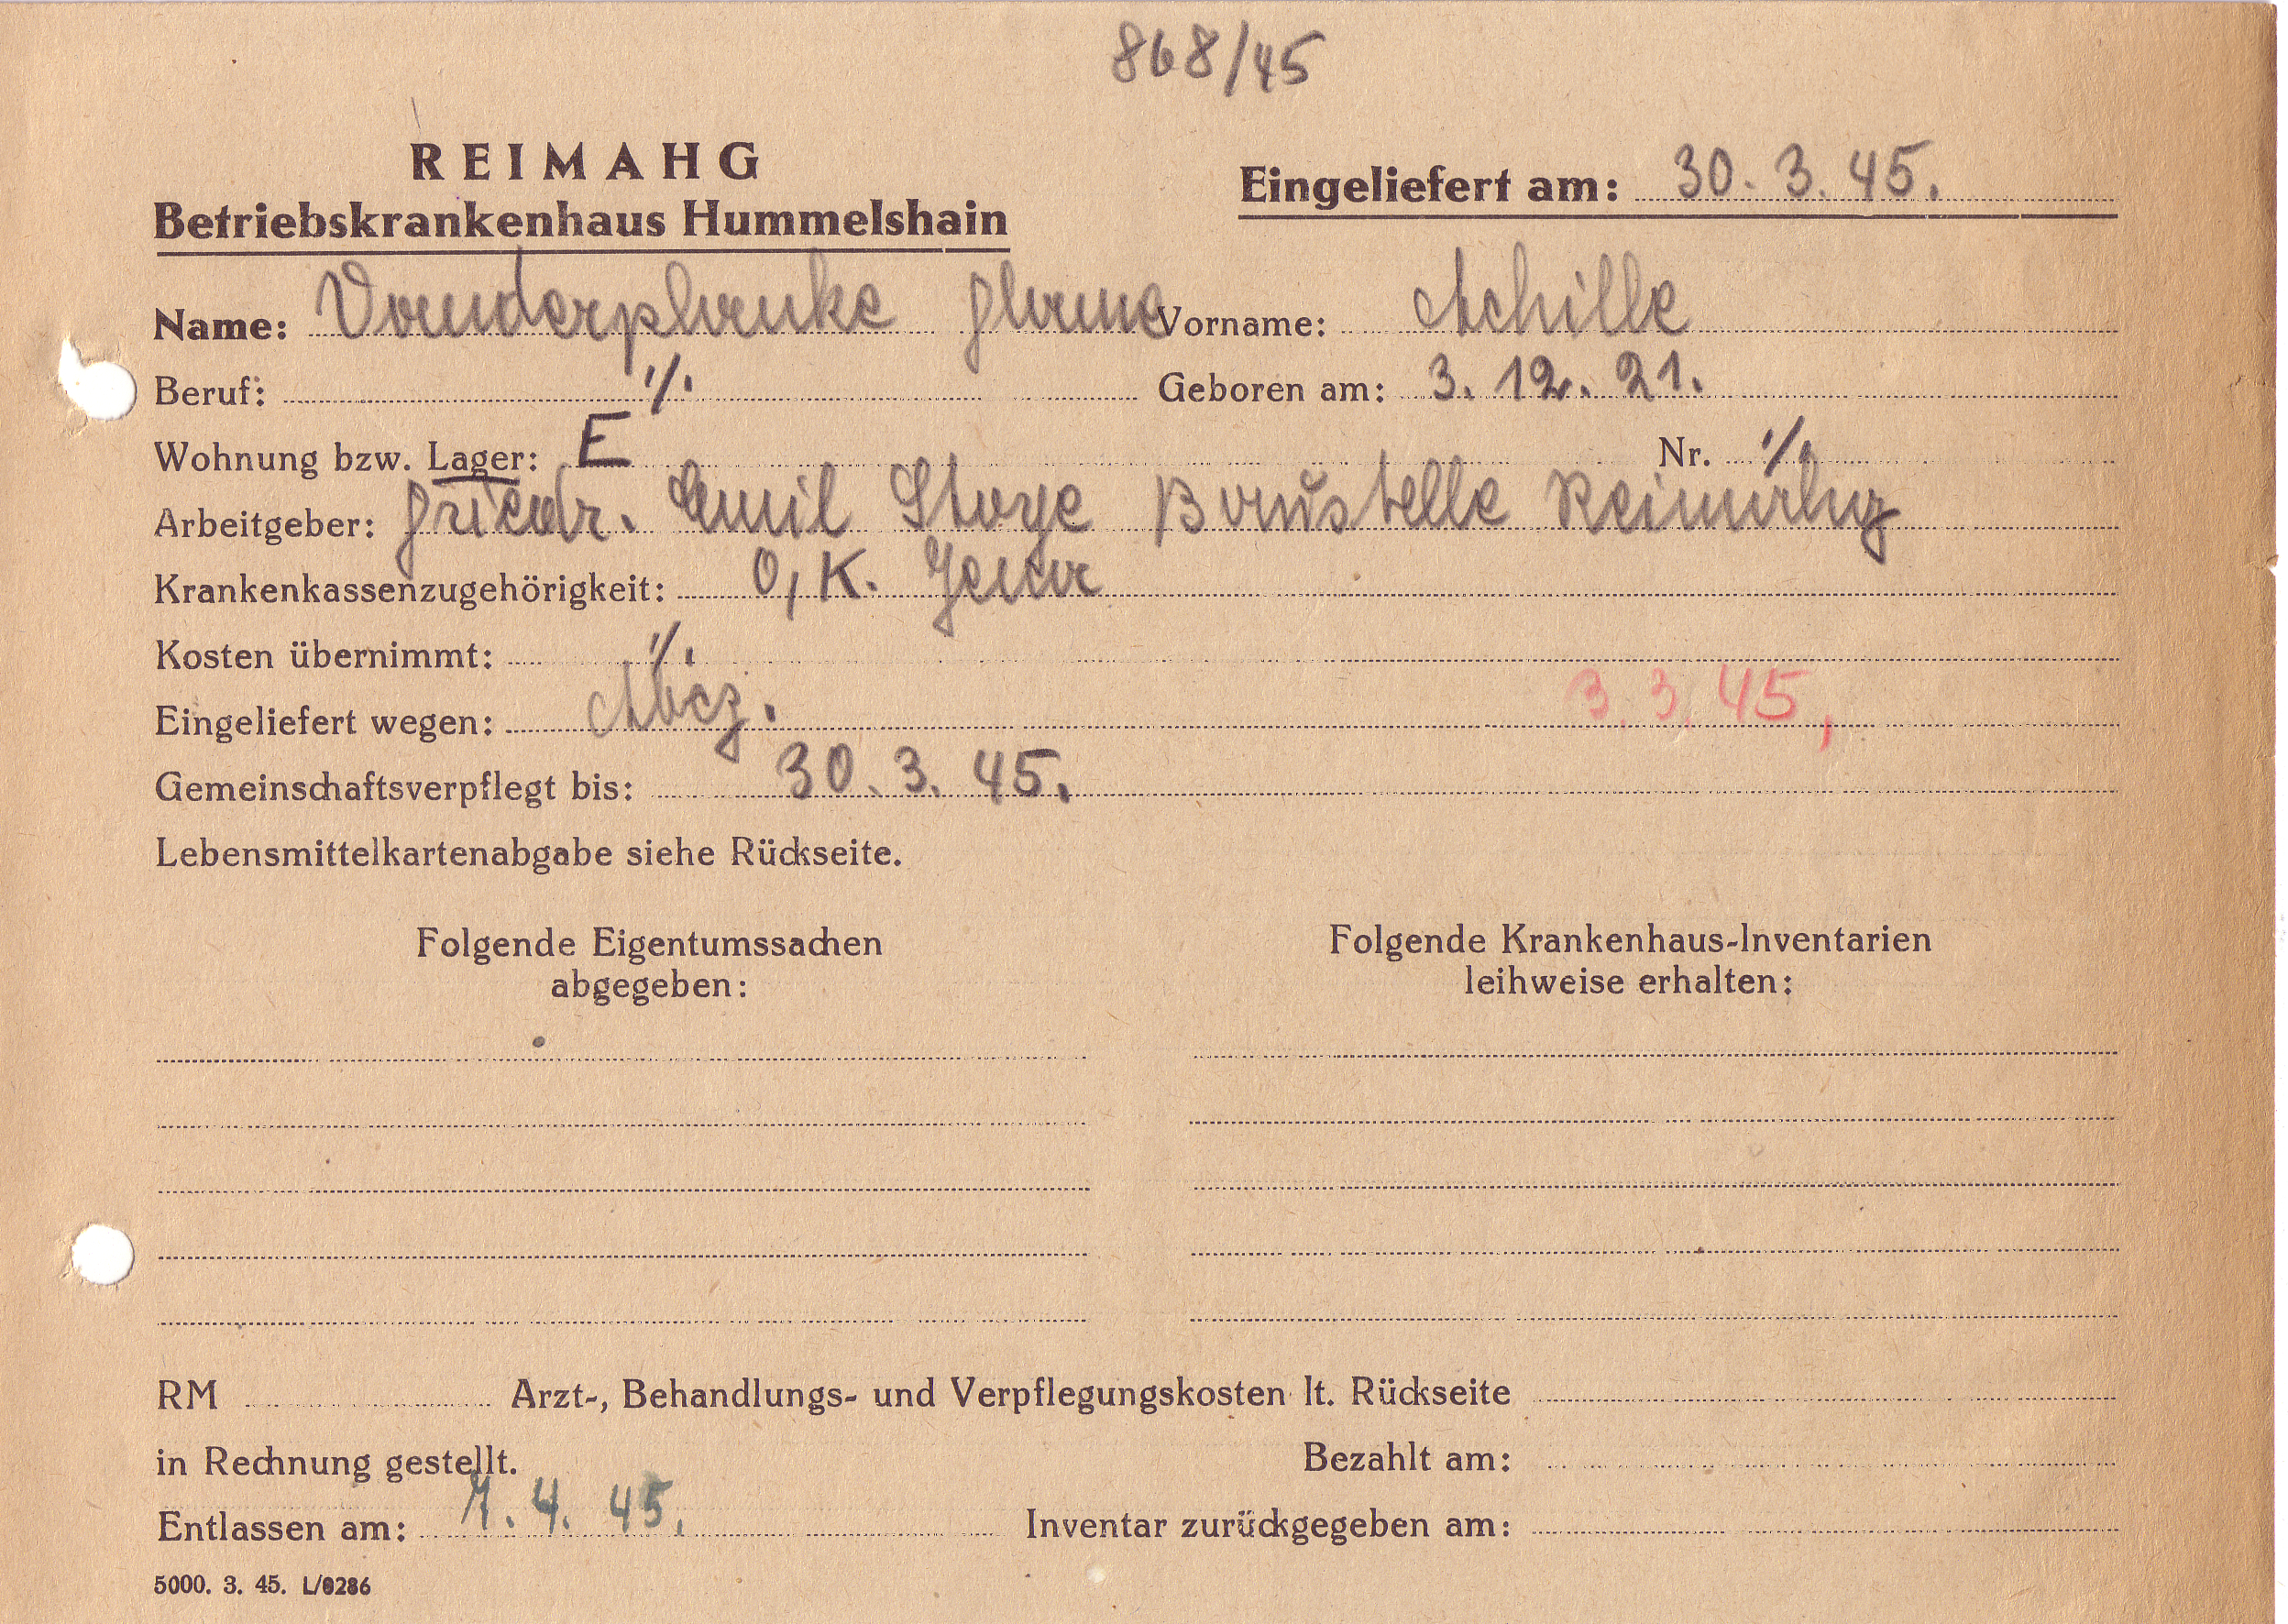 868/45
REIMAHG
Betriebskrankenhaus Hummelshain
Eingeliefert am: 30. 3. 45.
Name: Vanderplanke Vorname: Achille
Beruf: ./. Geboren am: 3. 12. 21.
Wohnung bzw. Lager: E Nr. ./.
Arbeitgeber: Friedr. Emil Stoye Baustelle Reimahg
Krankenkassenzugehörigkeit: O, K. Jena
Kosten übernimmt: ./.
Eingeliefert wegen: 3. 3. 45,
Gemeinschaftsverpflegt bis: 30. 3. 45.
Lebensmittelkartenabgabe siehe Rückseite.
Folgende Eigentumssachen
abgegeben:
Folgende Krankenhaus-Inventarien
leihweise erhalten:
RM Arzt-, Behandlungs- und Verpflegungskosten lt. Rückseite
in Rechnung gestellt. Bezahlt am:
Entlassen am: 7. 4. 45. Inventar zurückgegeben am:
5000. 3. 45. L/0286